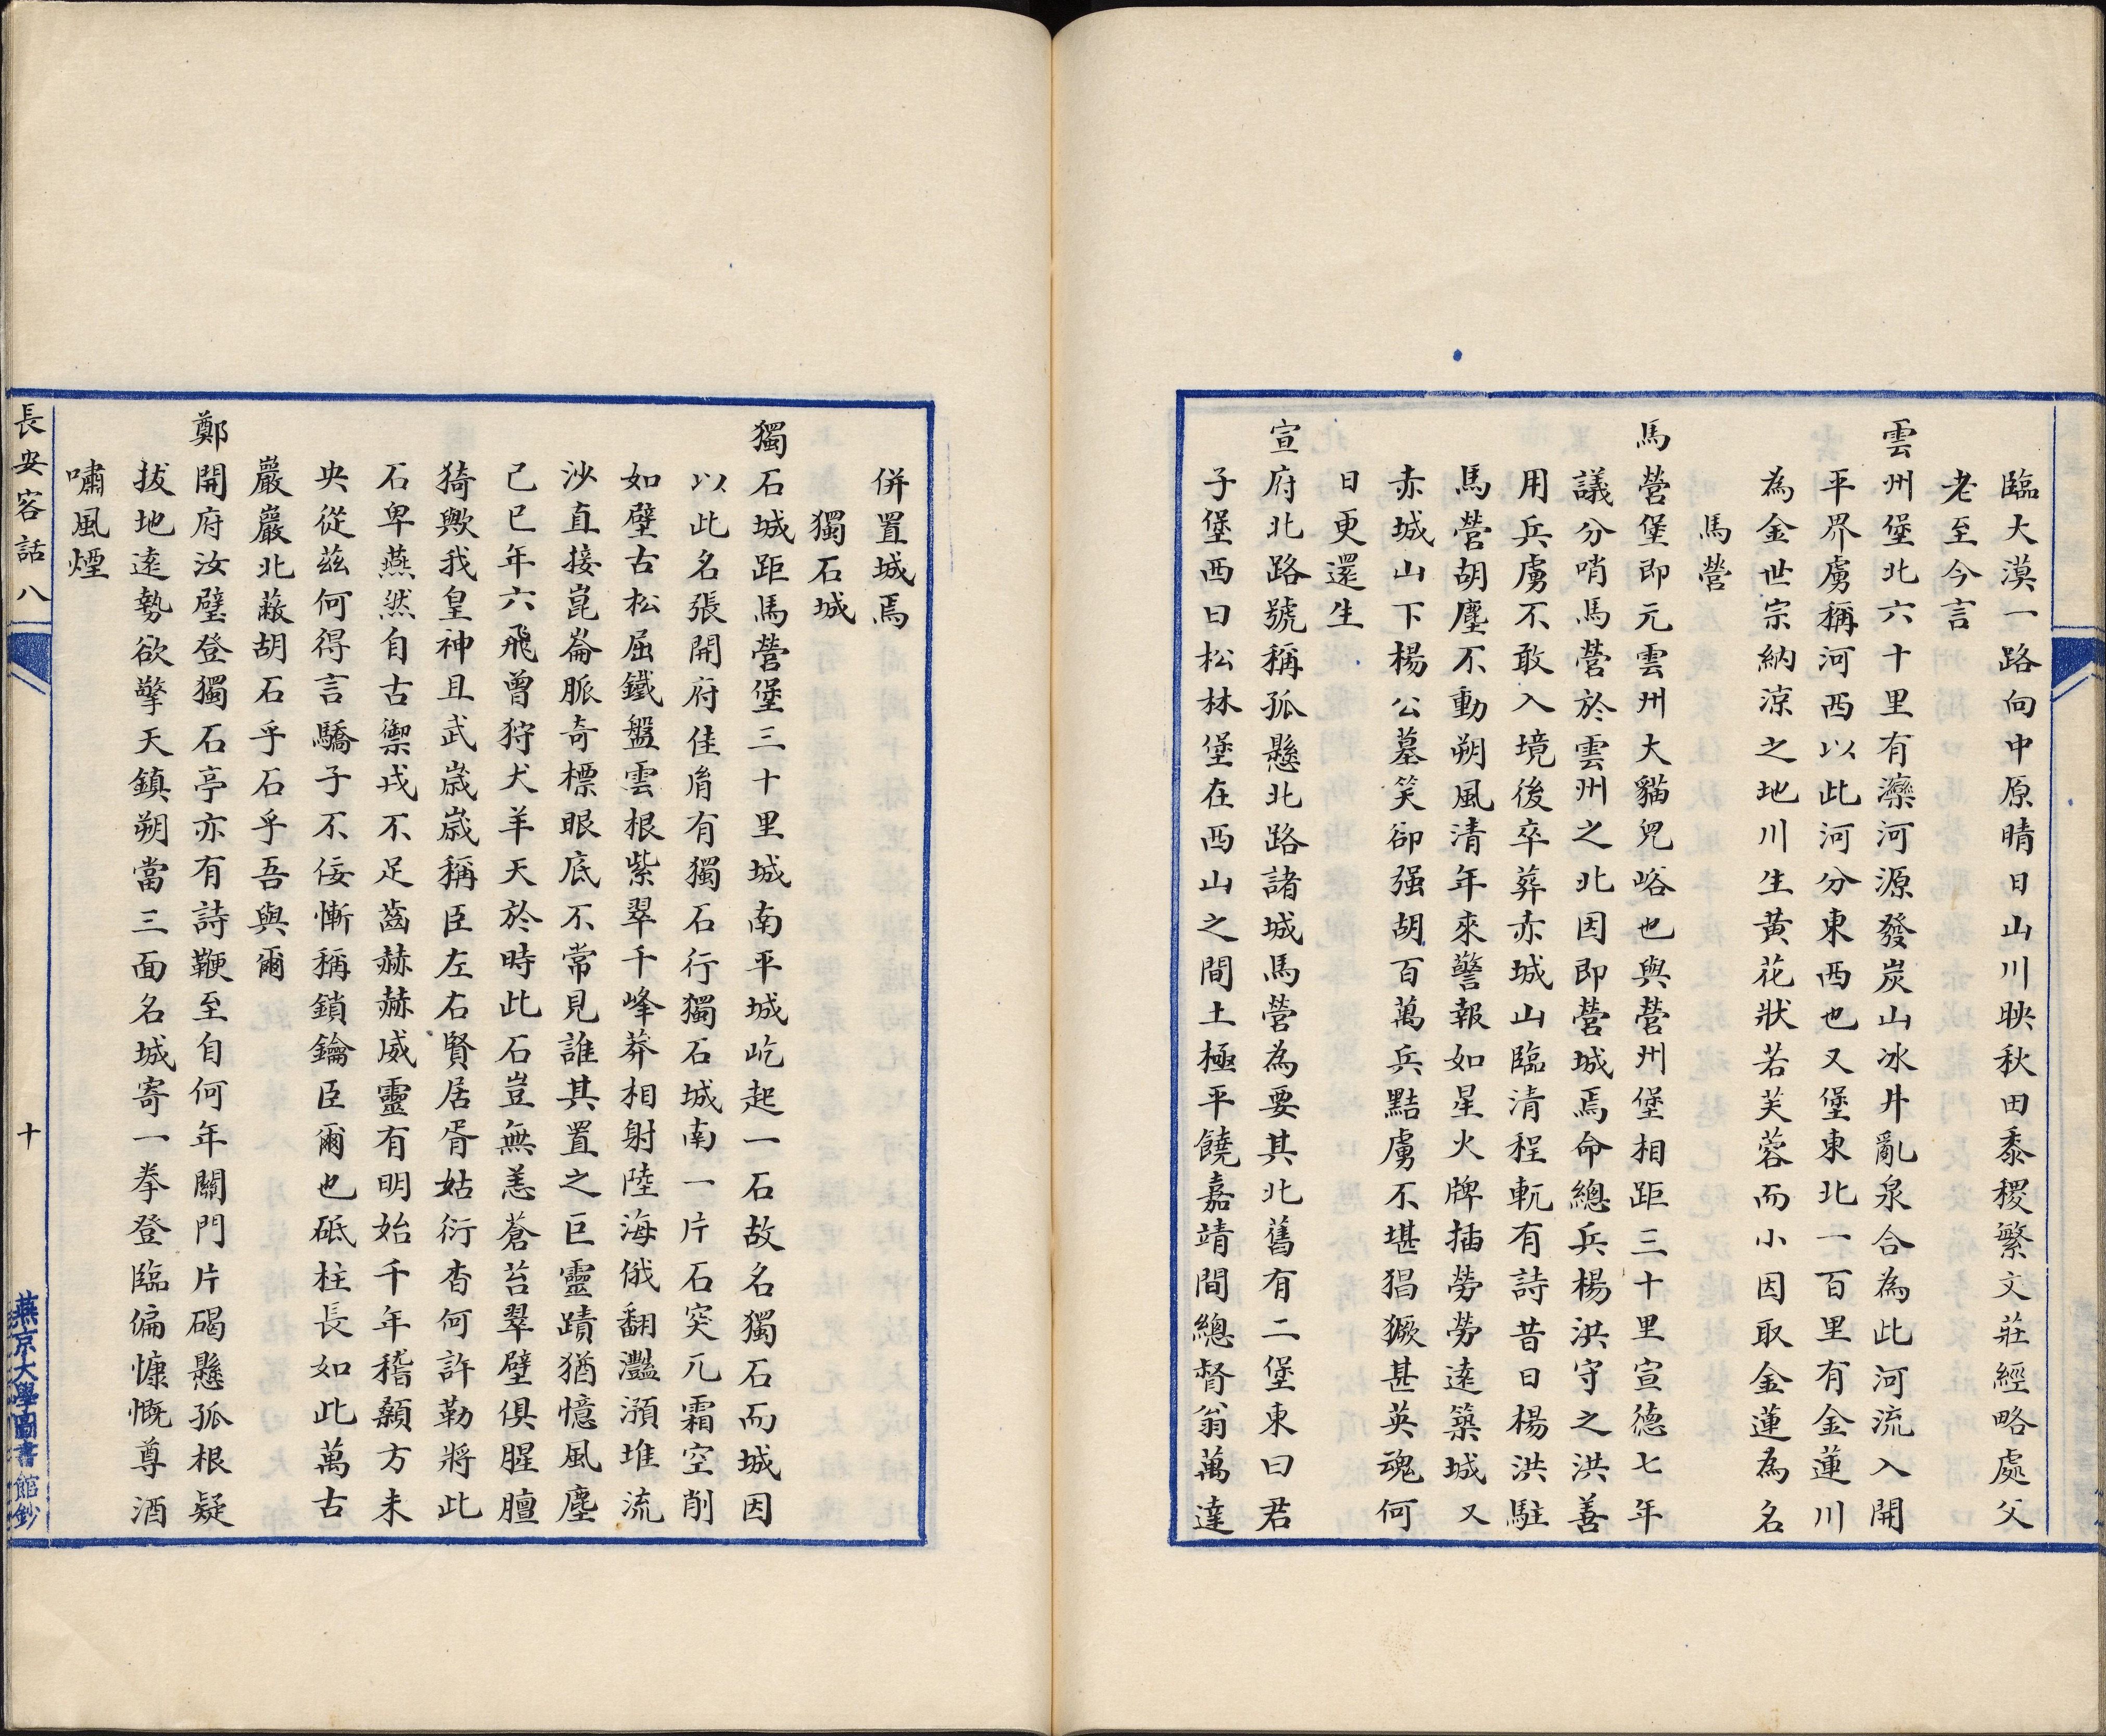 臨大漠一路向中原晴日山川映秋田黍稷繁文莊經略處父
老至今言
雲州堡北六十里有灤河源發炭山冰井亂泉合為此河流入開
平界虜稱河西以此河分東西也又堡東北一百里有金蓮川
為金世宗納涼之地川生黃花狀若芙蓉而小因取金蓮為名
馬營
馬營堡即元雲州大貓兒峪也與營州堡相距三十里宣德七年
議分哨馬營於雲州之北因即營城焉命總兵楊洪守之洪善
用兵虜不敢入境後卒葬赤城山臨清程軏有詩昔日楊洪駐
馬營胡塵不動朔風清年來警報如星火牌插勞勞遠築城又
赤城山下楊公墓笑卻强胡百萬兵黠虜不堪猖獗甚英魂何
日更還生
宣府北路號稱孤懸北路諸城馬營為要其北舊有二堡東曰君
子堡西曰松林堡在西山之間土極平饒嘉靖間總督翁萬達
併置城焉
獨石城
獨石城距馬營堡三十里城南平城屹起一石故名獨石而城因
以此名張開府佳胤有獨石行獨石城南一片石突兀霜空削
如壁古松屈鐵盤雲根紫翠千峰莽相射陸海俄翻灩澦堆流
沙直接崑崙脈奇標眼底不常見誰其置之巨靈蹟猶憶風塵
己巳年六飛曾狩犬羊天於時此石豈無恙蒼苔翠壁俱腥膻
猗歟我皇神且武歲歲稱臣左右賢居胥姑衍杳何許勒將此
石卑燕然自古禦戎不足齒赫赫威靈有明始千年稽顙方未
央從茲何得言驕子不佞慚稱鎖鑰臣爾也砥柱長如此萬古
巖巖北蔽胡石乎石乎吾與爾
鄭開府汝璧登獨石亭亦有詩鞭至自何年關門片碣懸孤根疑
拔地遠勢欲擎天鎮朔當三面名城寄一拳登臨偏慷慨尊酒
嘯風煙
長安客話 八
十
燕京大學圖書館鈔